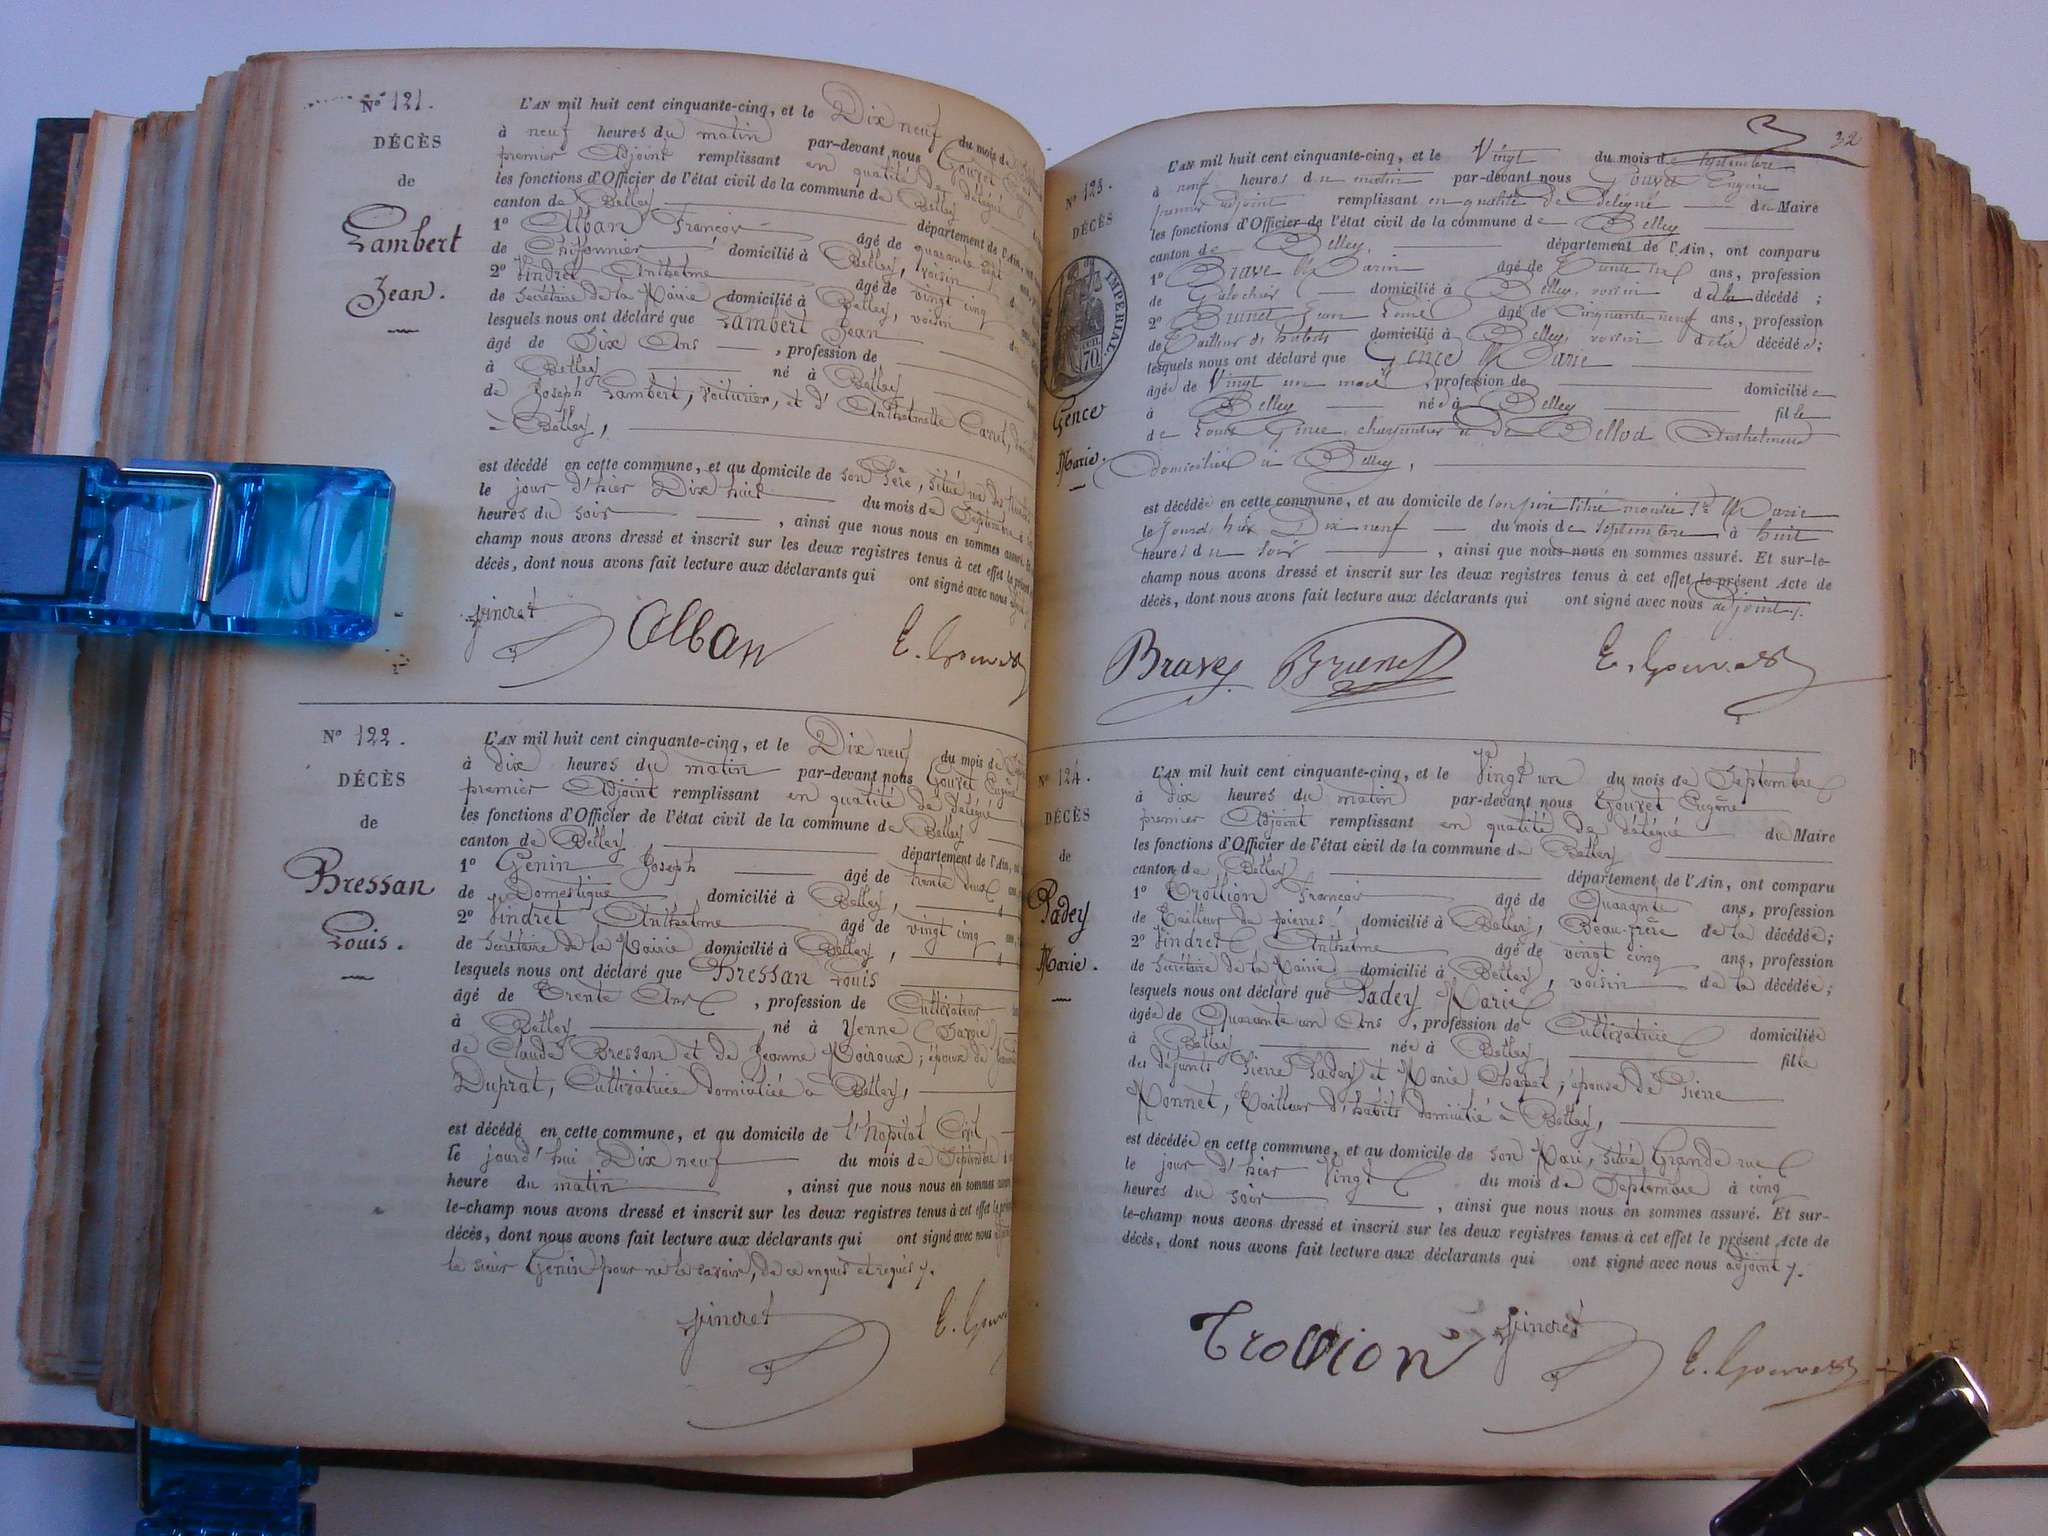 Nº 121.
DÉCÈS
de
Lambert
Jean.
L'AN mil huit cent cinquante-cinq, et le Dix neuf du mois de
à neuf heures du matin par-devant nous Gouvet
premier Adjoint remplissant en qualité de délégué
les fonctions d'Officier de l'état civil de la commune de Belley
canton de Belley département de l'Ain,
1º Alban François âgé de quarante sept
de Chiffonnier domicilié à Belley, voisin
2º Vindret Anthelme âgé de vingt cinq
de Secrétaire de la Mairie domicilié à Belley, voisin
lesquels nous ont déclaré que Lambert Jean
âgé de Six Ans, profession de
à Belley né à Belley
de Joseph Lambert, voiturier, et d'Anthelmette
à Belley,
est décédé en cette commune, et au domicile de son Père, située
le jour d'hier Dix huit du mois de Septembre à
heures du soir, ainsi que nous nous en sommes assuré. Et
champ nous avons dressé et inscrit sur les deux registres tenus à cet effet le présent
décès, dont nous avons fait lecture aux déclarants qui ont signé avec nous
Vindret Alban E. Gouvet
Nº 122.
DÉCÈS
de
Bressan
Louis.
L'AN mil huit cent cinquante-cinq, et le Dix neuf du mois de
à dix heures du matin par-devant nous Gouvet Eugène
premier Adjoint remplissant en qualité de délégué
les fonctions d'Officier de l'état civil de la commune de Belley
canton de Belley département de l'Ain,
1º Genin Joseph âgé de trente deux
de Domestique domicilié à Belley,
2º Vindret Anthelme âgé de vingt cinq
de Secrétaire de la Mairie domicilié à Belley,
lesquels nous ont déclaré que Bressan Louis
âgé de Trente Ans, profession de Cultivateur
à Belley né à Yenne (Savoie)
de Claude Bressan et de Jeanne Moiroux; époux de
Duprat, Cultivatrice domiciliée à Belley,
est décédé en cette commune, et au domicile de l'hopital Civil
le jourd'hui Dix neuf du mois de Septembre
heure du matin, ainsi que nous nous en sommes
le-champ nous avons dressé et inscrit sur les deux registres tenus à cet effet le
décès, dont nous avons fait lecture aux déclarants qui ont signé avec nous
le sieur Genin pour ne le savoir, de ce enquis et requis
Vindret E. Gouvet
32
Nº 123.
DÉCÈS
IMPÉRIAL
70
Gence
Marie.
L'AN mil huit cent cinquante-cinq, et le Vingt du mois de Septembre
à neuf heures du matin par-devant nous Gouvet Eugène
premier adjoint remplissant en qualité de délégué du Maire
les fonctions d'Officier de l'état civil de la commune de Belley
canton de Belley, département de l'Ain, ont comparu
1º Brave Marin âgé de trente ans, profession
de Galochier domicilié à Belley, voisin de la décédée;
2º Brunet Jean Louis âgé de Cinquante neuf ans, profession
de Tailleur de habits domicilié à Belley, voisin de la décédée;
lesquels nous ont déclaré que Gence Marie
âgée de Vingt un mois, profession de domiciliée
à Belley née à Belley fille
de Louis Gence charpentier et de Bellod Anthelmette
domiciliés à Belley,
est décédée en cette commune, et au domicile de son père situé montée Ste Marie
le jour d'hier Dix neuf du mois de Septembre à huit
heures du soir, ainsi que nous nous en sommes assuré. Et sur-le-
champ nous avons dressé et inscrit sur les deux registres tenus à cet effet le présent Acte de
décès, dont nous avons fait lecture aux déclarants qui ont signé avec nous adjoint
Brave Brunet E. Gouvet
Nº 124.
DÉCÈS
de
Padey
Marie.
L'AN mil huit cent cinquante-cinq, et le Vingt un du mois de Septembre
à dix heures du matin par-devant nous Gouvet Eugène
premier Adjoint remplissant en qualité de délégué du Maire
les fonctions d'Officier de l'état civil de la commune de Belley
canton de Belley département de l'Ain, ont comparu
1º Trollion François âgé de Quarante ans, profession
de Tailleur de pierres, domicilié à Belley, Beau-frère de la décédée;
2º Vindret Anthelme âgé de vingt cinq ans, profession
de Secrétaire de la Mairie domicilié à Belley, voisin de la décédée;
lesquels nous ont déclaré que Padey Marie
âgée de Quarante un Ans, profession de Cultivatrice domiciliée
à Belley née à Belley fille
des défunts Pierre Padey et Marie Chapet; épouse de Pierre
Monnet, Tailleur d'habits domicilié à Belley,
est décédée en cette commune, et au domicile de son Mari, située Grande rue
le jour d'hier Vingt du mois de Septembre à cinq
heures du soir, ainsi que nous nous en sommes assuré. Et sur-
le-champ nous avons dressé et inscrit sur les deux registres tenus à cet effet le présent Acte de
décès, dont nous avons fait lecture aux déclarants qui ont signé avec nous adjoint
Trollion Vindret E. Gouvet